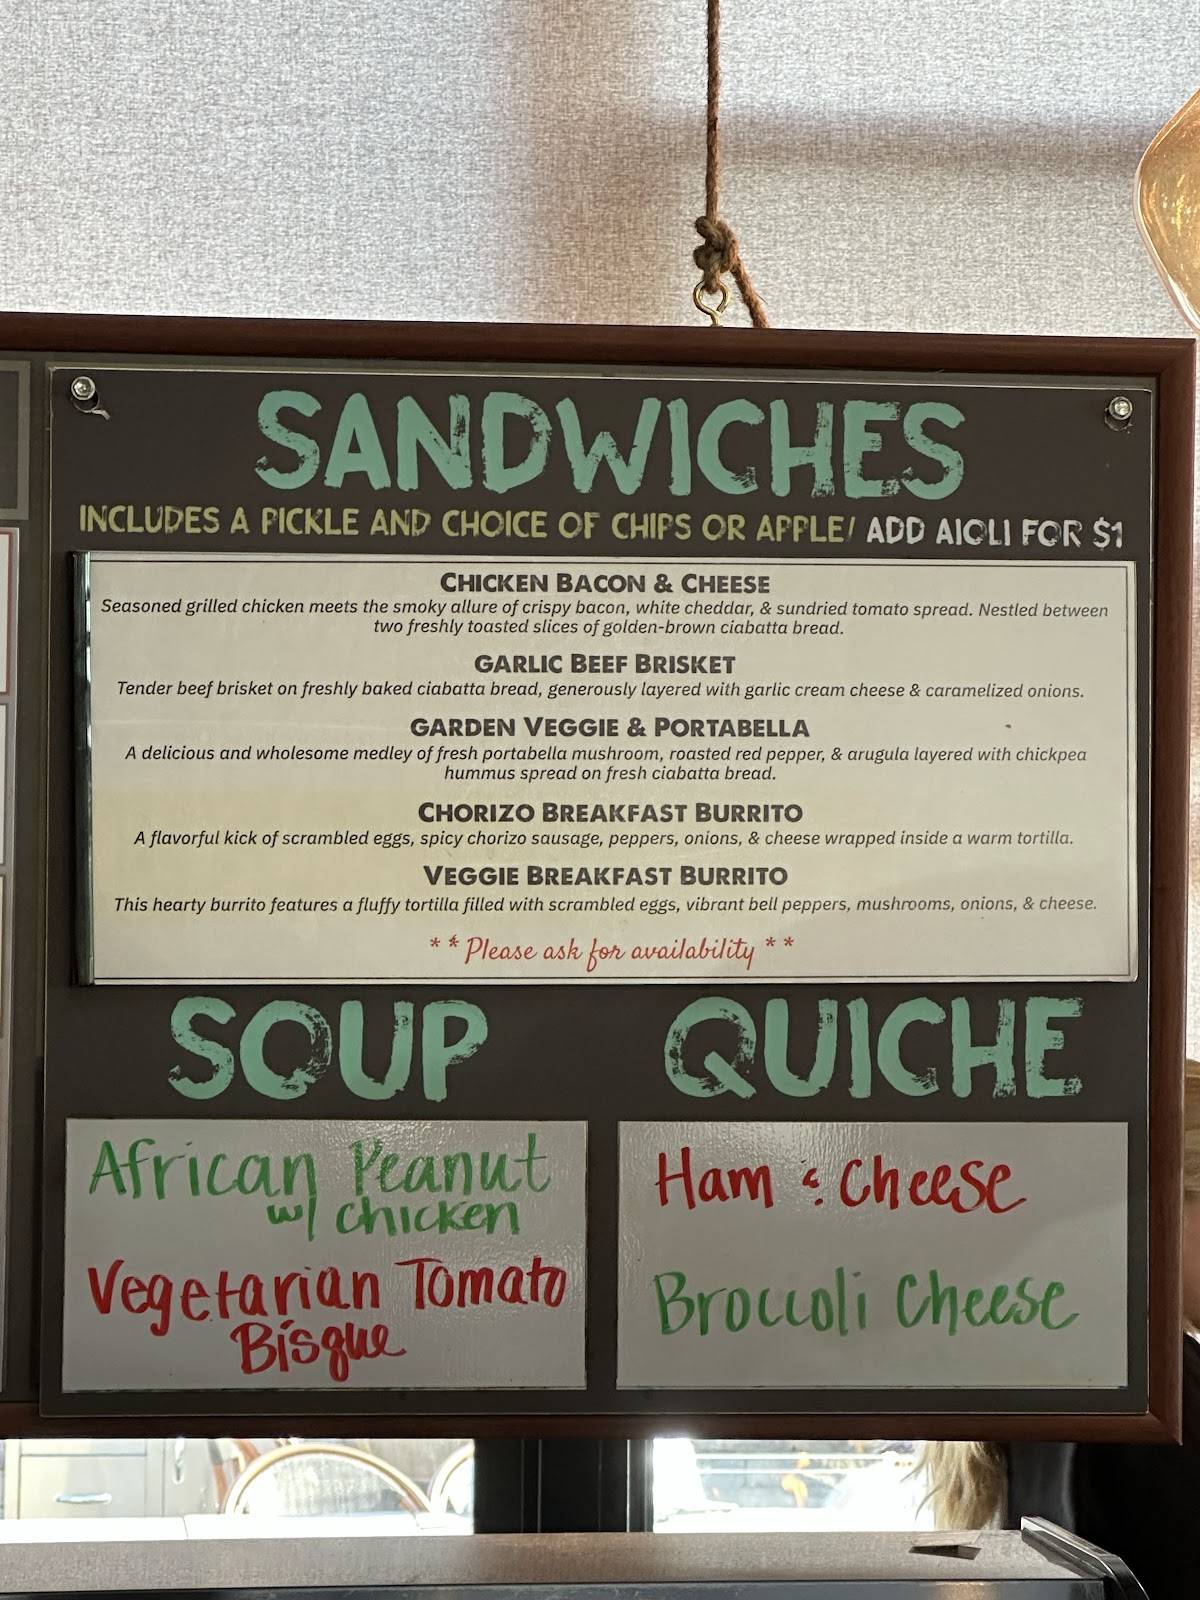 SANDWICHES
INCLUDES A PICKLE AND CHOICE OF CHIPS OR APPLE/ ADD AIOLI FOR $1
CHICKEN BACON & CHEESE
Seasoned grilled chicken meets the smoky allure of crispy bacon, white cheddar, & sundried tomato spread. Nestled between
two freshly toasted slices of golden-brown ciabatta bread.
GARLIC BEEF BRISKET
Tender beef brisket on freshly baked ciabatta bread, generously layered with garlic cream cheese & caramelized onions.
GARDEN VEGGIE & PORTABELLA
A delicious and wholesome medley of fresh portabella mushroom, roasted red pepper, & arugula layered with chickpea
hummus spread on fresh ciabatta bread.
CHORIZO BREAKFAST BURRITO
A flavorful kick of scrambled eggs, spicy chorizo sausage, peppers, onions, & cheese wrapped inside a warm tortilla.
VEGGIE BREAKFAST BURRITO
This hearty burrito features a fluffy tortilla filled with scrambled eggs, vibrant bell peppers, mushrooms, onions, & cheese.
** Please ask for availability **
SOUP
African Peanut
w/ chicken
Vegetarian Tomato
Bisque
QUICHE
Ham & Cheese
Broccoli Cheese